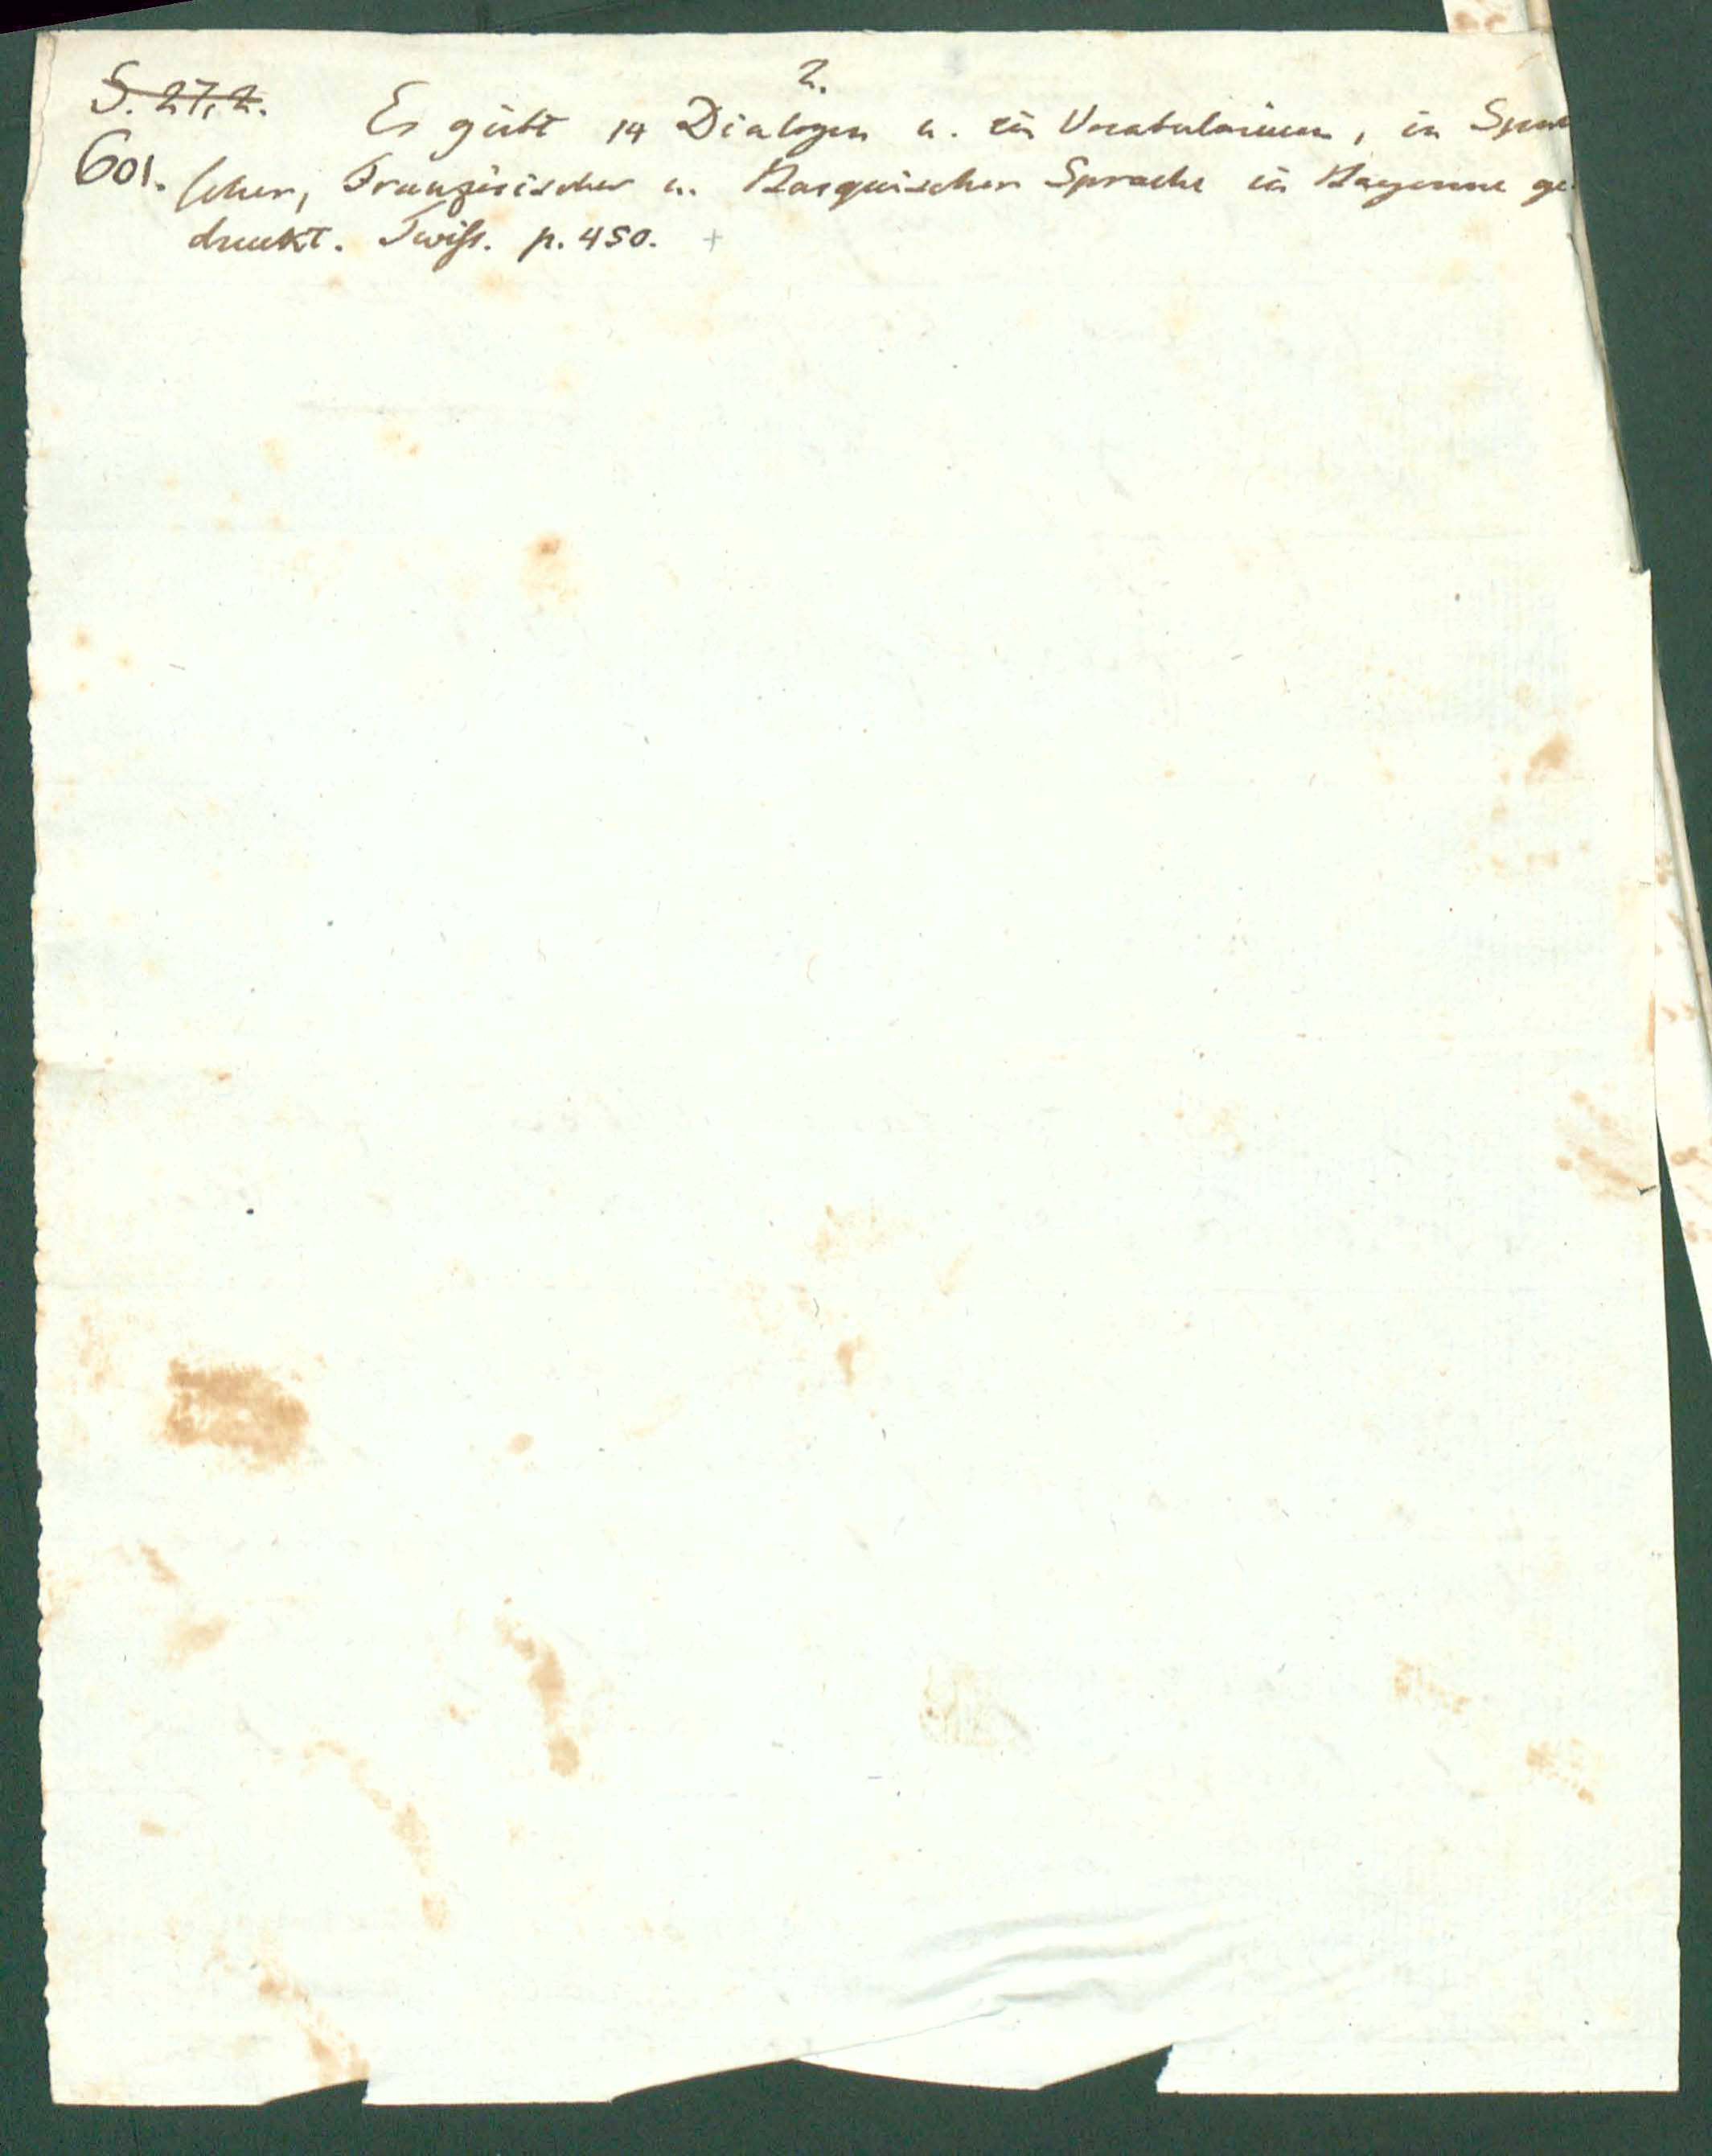 2.
S. 27, 2. Es giebt 14 Dialogen u. ein Vocabularium, in Span
601. scher, Französischer u. Basquischer Sprache in Bayonne ge
druckt. Twiss. p. 450. +